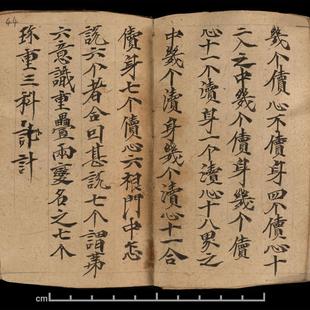 幾个債心不債身四个債心十
二入之中幾个債身幾个債
心十一个瀆身一个瀆心十八界之
中幾个瀆身幾个瀆心十一合
債身七个債心六根門中怎
說六个者合曰甚說七个謂第
六意識重疊兩变名之七个
珎重三科計
44
cm